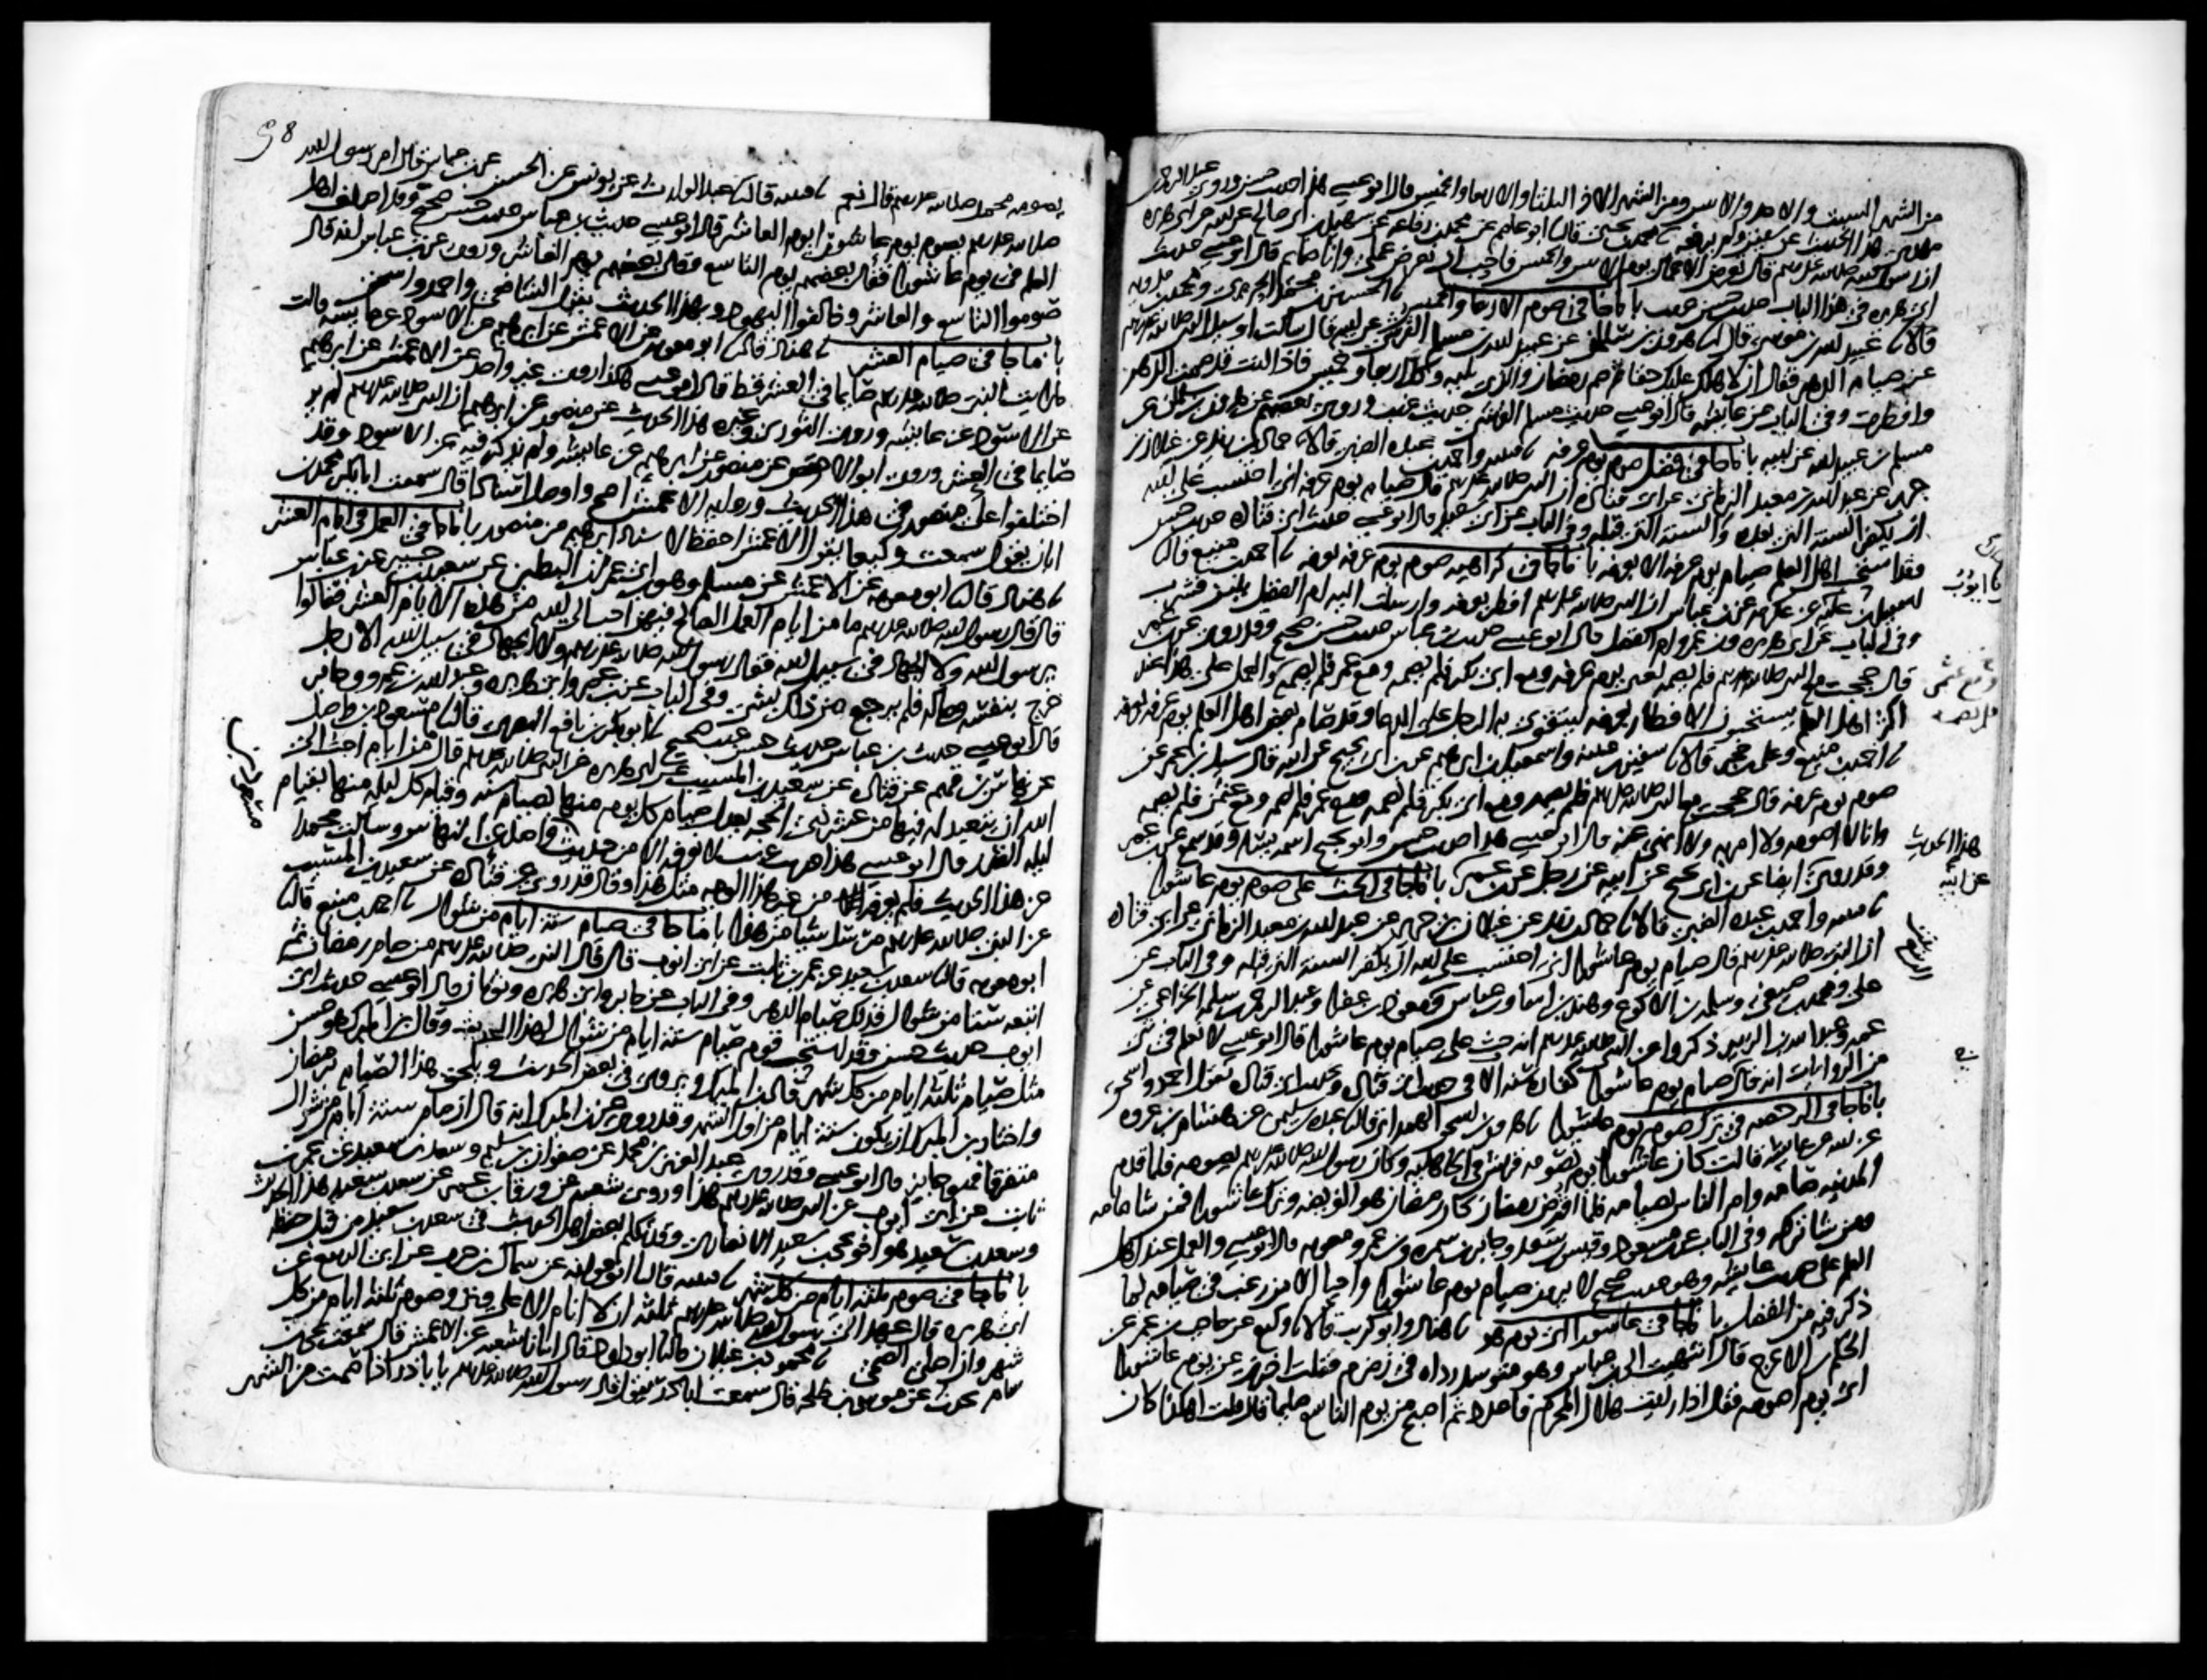 من الشهر السبت والاحد والاثنين ومن الشهر الاخر الثلثا والاربعا والخميس قال ابو عيسى هذا حديث حسن وروى عبد الرحمن
مهدى هذا الحديث عن سفين ولم يرفعه ثنا محمد بن يحيى قال ثنا ابو عاصم عن محمد بن رفاعه عن سهيل بن ابى صالح عن ابيه عن ابى هريره
ان رسول الله صلى الله عليه وسلم قال تعرض الاعمال يوم الاثنين والخميس فاحب ان يعرض عملى وانا صايم قال ابو عيسى حديث
ابى هريره فى هذا الباب حديث حسن غريب باب ما جا فى صوم الاربعا والخميس ثنا الحسين بن محمد الجريرى ومحمد بن مدويه
قالا ثنا عبيد الله بن موسى قال ثنا هرون بن سلمان عن عبيد الله بن مسلم القرشى عن ابيه قال سالت او سيل النبى صلى الله عليه وسلم
عن صيام الدهر فقال ان لاهلك عليك حقا ثم صم رمضان والذى يليه وكل اربعا وخميس فاذا انت قد صمت الدهر
وافطرت وفى الباب عن عايشه قال ابو عيسى حديث مسلم القرشى حديث غريب وروى بعضهم عن هرون بن سلمان عن
مسلم بن عبيد الله عن ابيه باب ما جا فى فضل صوم يوم عرفه ثنا قتيبه واحمد بن عبده الضبى قالا ثنا حماد بن زيد عن غيلان بن
جرير عن عبد الله بن معبد الزمانى عن ابى قتاده ان النبى صلى الله عليه وسلم قال صيام يوم عرفه انى احتسب على الله
ان يكفر السنه التى بعده والسنه التى قبله وفى الباب عن ابى سعيد قال ابو عيسى حديث ابى قتاده حديث حسن
وقد استحب اهل العلم صيام يوم عرفه الا بعرفه باب ما جا فى كراهيه صوم يوم عرفه بعرفه ثنا احمد بن منيع قال ثنا
اسمعيل بن عليه عن عكرمه عن ابن عباس ان النبى صلى الله عليه وسلم افطر بعرفه وارسلت اليه ام الفضل بلبن فشرب
وفى الباب عن ابى هريره وابن عمر وام الفضل قال ابو عيسى حديث ابن عباس حديث حسن صحيح وقد روى عن ابن عمر
قال حججت مع النبى صلى الله عليه وسلم فلم يصمه يعنى يوم عرفه ومع ابى بكر فلم يصمه ومع عمر فلم يصمه والعمل على هذا عند
اكثر اهل العلم يستحبون الافطار بعرفه ليتقوى به الرجل على الدعا وقد صام بعض اهل العلم يوم عرفه بعرفه
ثنا احمد بن منيع وعلى بن حجر قالا ثنا سفين بن عيينه واسمعيل بن ابرهيم عن ابن ابى نجيح عن ابيه قال سيل ابن عمر عن
صوم يوم عرفه قال حججت مع النبى صلى الله عليه وسلم فلم يصمه ومع ابى بكر فلم يصمه ومع عمر فلم يصمه ومع عثمن فلم يصمه
وانا لا اصومه ولا امر به ولا انهى عنه قال ابو عيسى هذا حديث حسن وابو نجيح اسمه يسار وقد سمع من ابن عمر
وقد روى ايضا عن ابن ابى نجيح عن ابيه عن رجل عن ابن عمر باب ما جا فى الحث على صوم يوم عاشورا
ثنا قتيبه واحمد بن عبده الضبى قالا ثنا حماد بن زيد عن غيلان بن جرير عن عبد الله بن معبد الزمانى عن ابى قتاده
ان النبى صلى الله عليه وسلم قال صيام يوم عاشورا انى احتسب على الله ان يكفر السنه التى قبله وفى الباب عن
على ومحمد بن صيفى وسلمه بن الاكوع وهند بن اسما وابن عباس والربيع بنت معوذ بن عفرا وعبد الرحمن بن سلمه الخزاعى عن
عمه وعبد الله بن الزبير ذكروا عن النبى صلى الله عليه وسلم انه حث على صيام يوم عاشورا قال ابو عيسى لا نعلم فى شى
من الروايات انه قال صيام يوم عاشورا كفاره سنه الا فى حديث ابى قتاده وبحديث ابى قتاده يقول احمد واسحق
باب ما جا فى الرخصه فى ترك صوم يوم عاشورا ثنا هرون بن اسحق الهمدانى قال ثنا عبده بن سليمن عن هشام بن عروه
عن ابيه عن عايشه قالت كان عاشورا يوم تصومه قريش فى الجاهليه وكان رسول الله صلى الله عليه وسلم يصومه فلما قدم
المدينه صامه وامر الناس بصيامه فلما افترض رمضان كان رمضان هو الفريضه وترك عاشورا فمن شا صامه
ومن شا تركه وفى الباب عن ابن مسعود وقيس بن سعد وجابر بن سمره وابن عمر ومعويه قال ابو عيسى والعمل عند اهل
العلم على حديث عايشه وهو حديث صحيح لا يرون صيام يوم عاشورا واجبا الا من رغب فى صيامه لما
ذكر فيه من الفضل باب ما جا فى عاشورا اى يوم هو ثنا هناد وابو كريب قالا ثنا وكيع عن حاجب بن عمر عن
الحكم بن الاعرج قال انتهيت الى ابن عباس وهو متوسد رداه فى زمزم فقلت اخبرنى عن يوم عاشورا
اى يوم اصومه فقال اذا رايت هلال المحرم فاعدد ثم اصبح من يوم التاسع صايما قال قلت اهكذا كان
98
يصومه محمد صلى الله عليه وسلم قال نعم ثنا قتيبه قال ثنا عبد الوارث عن يونس عن الحسن عن ابن عباس قال امر رسول الله
صلى الله عليه وسلم بصوم يوم عاشورا يوم العاشر قال ابو عيسى حديث ابن عباس حديث حسن صحيح وقد اختلف اهل
العلم فى يوم عاشورا فقال بعضهم يوم التاسع وقال بعضهم يوم العاشر وروى عن ابن عباس انه قال
صوموا التاسع والعاشر وخالفوا اليهود وبهذا الحديث يقول الشافعى واحمد واسحق
باب ما جا فى صيام العشر ثنا هناد قال ثنا ابو معويه عن الاعمش عن ابرهيم عن الاسود عن عايشه قالت
ما رايت النبى صلى الله عليه وسلم صايما فى العشر قط قال ابو عيسى هكذا روى غير واحد عن الاعمش عن ابرهيم
عن الاسود عن عايشه وروى الثورى وغيره هذا الحديث عن منصور عن ابرهيم ان النبى صلى الله عليه وسلم لم ير
صايما فى العشر وروى ابو الاحوص عن منصور عن ابرهيم عن عايشه ولم يذكر فيه عن الاسود وقد
اختلفوا على منصور فى هذا الحديث وروايه الاعمش اصح واوصل اسنادا قال سمعت ابا بكر محمد بن
ابان يقول سمعت وكيعا يقول الاعمش احفظ لاسناد ابرهيم من منصور باب ما جا فى العمل فى ايام العشر
ثنا هناد قال ثنا ابو معويه عن الاعمش عن مسلم وهو ابن ابى عمران البطين عن سعيد بن جبير عن ابن عباس
قال قال رسول الله صلى الله عليه وسلم ما من ايام العمل الصالح فيهن احب الى الله من هذه الايام العشر فقالوا
يرسول الله ولا الجهاد فى سبيل الله فقال رسول الله صلى الله عليه وسلم ولا الجهاد فى سبيل الله الا رجل
خرج بنفسه وماله فلم يرجع من ذلك بشى وفى الباب عن ابن عمر وابى هريره وعبد الله بن عمرو وجابر
قال ابو عيسى حديث ابن عباس حديث حسن غريب صحيح ثنا ابو بكر بن نافع البصرى قال ثنا مسعود بن واصل
عن نهاس بن قهم عن قتاده عن سعيد بن المسيب عن ابى هريره عن النبى صلى الله عليه وسلم قال ما من ايام احب الى
الله ان يتعبد له فيها من عشر ذى الحجه يعدل صيام كل يوم منها بصيام سنه وقيام كل ليله منها بقيام
ليله القدر قال ابو عيسى هذا حديث غريب لا نعرفه الا من حديث مسعود بن واصل عن النهاس وسالت محمدا
عن هذا الحديث فلم يعرفه من غير هذا الوجه مثل هذا وقال قد روى عن قتاده عن سعيد بن المسيب
عن النبى صلى الله عليه وسلم مرسل شيا من هذا باب ما جا فى صيام سته ايام من شوال ثنا احمد بن منيع قال ثنا
ابو معويه قال ثنا سعد بن سعيد عن عمر بن ثابت عن ابى ايوب قال قال النبى صلى الله عليه وسلم من صام رمضان ثم
اتبعه ستا من شوال فذلك صيام الدهر وفى الباب عن جابر وابى هريره وثوبان قال ابو عيسى حديث ابى
ايوب حديث حسن وقد استحب قوم صيام سته ايام من شوال لهذا الحديث وقال ابن المبرك هو حسن
مثل صيام ثلثه ايام من كل شهر قال ابن المبرك ويروى فى بعض الحديث ويلحق هذا الصيام برمضان
واختار ابن المبرك ان يكون سته ايام من اول الشهر وقد روى عن ابن المبرك انه قال ان صام سته ايام من شوال
متفرقا فهو جايز قال ابو عيسى وقد روى عبد العزيز بن محمد عن صفوان بن سليم وسعد بن سعيد عن عمر بن
ثابت عن ابى ايوب عن النبى صلى الله عليه وسلم هذا وروى شعبه عن ورقا بن عمر عن سعد بن سعيد هذا الحديث
وسعد بن سعيد هو اخو يحيى بن سعيد الانصارى وقد تكلم بعض اهل الحديث فى سعد بن سعيد من قبل حفظه
باب ما جا فى صوم ثلثه ايام من كل شهر ثنا قتيبه قال ثنا ابو عوانه عن سماك بن حرب عن ابى الربيع عن
ابى هريره قال عهد الى رسول الله صلى الله عليه وسلم ثلثه ان لا انام الا على وتر وصوم ثلثه ايام من كل
شهر وان اصلى الضحى ثنا محمود بن غيلان قال ثنا ابو داود قال انبانا شعبه عن الاعمش قال سمعت يحيى بن
سام يحدث عن موسى بن طلحه قال سمعت ابا ذر يقول قال رسول الله صلى الله عليه وسلم يا با ذر اذا صمت من الشهر